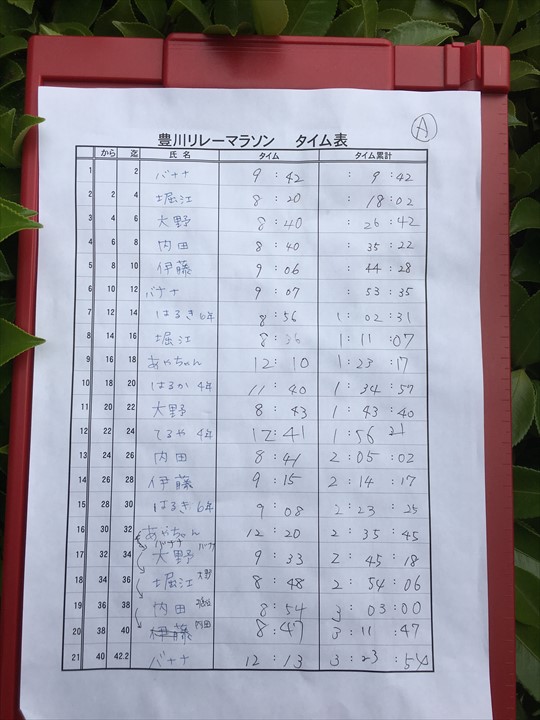 A
豊川リレーマラソン タイム表
から 迄 氏名 タイム タイム累計
1 2 バナナ 9:42 :9:42
2 2 4 堀江 8:20 :18:02
3 4 6 大野 8:40 :26:42
4 6 8 内田 8:40 :35:22
5 8 10 伊藤 9:06 :44:28
6 10 12 バナナ 9:07 :53:35
7 12 14 はるき6年 8:56 1:02:31
8 14 16 堀江 8:36 1:11:07
9 16 18 あいちゃん 12:10 1:23:17
10 18 20 はるか4年 11:40 1:34:57
11 20 22 大野 8:43 1:43:40
12 22 24 てるや4年 12:41 1:56 21
13 24 26 内田 8:41 2:05:02
14 26 28 伊藤 9:15 2:14:17
15 28 30 はるき6年 9:08 2:23:25
16 30 32 あいちゃん 12:20 2:35:45
バナナ
17 32 34 大野 バナナ 9:33 2:45:18
18 34 36 堀江 大野 8:48 2:54:06
19 36 38 内田 堀江 8:54 3:03:00
20 38 40 伊藤 内田 8:47 3:11:47
21 40 42.2 バナナ 12:13 3:23:54